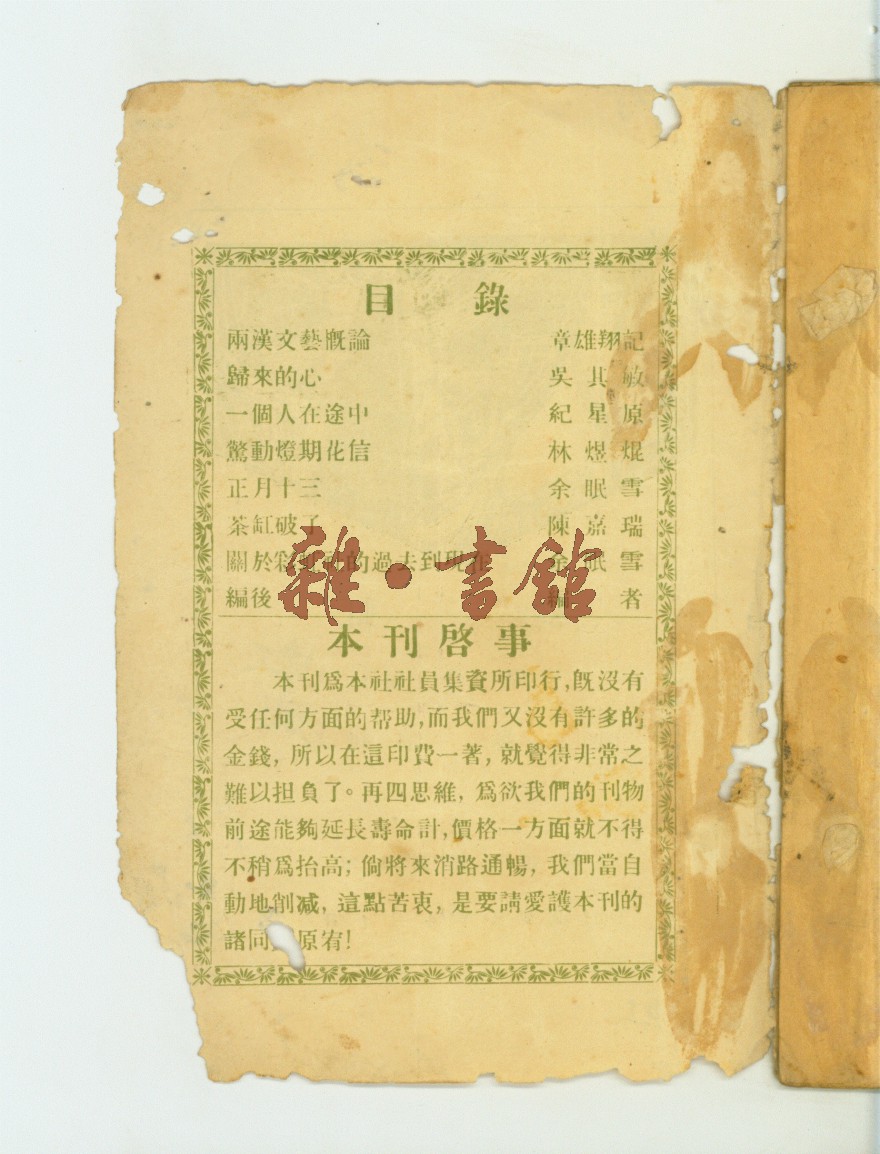 目 錄
兩漢文藝概論 章雄翔記
歸來的心 吳其敏
一個人在途中 紀星原
驚動燈期花信 林煜焜
正月十三 余眠雪
茶缸破了 陳嘉瑞
關於彩虹社的過去到現在 余眠雪
編後 編者
雜·書館
本刊啓事
本刊爲本社社員集資所印行,旣沒有
受任何方面的帮助,而我們又沒有許多的
金錢,所以在這印費一著,就覺得非常之
難以担負了。再四思維,爲欲我們的刊物
前途能夠延長壽命計,價格一方面就不得
不稍爲抬高;倘將來消路通暢,我們當自
動地削减,這點苦衷,是要請愛護本刊的
諸同 原宥!